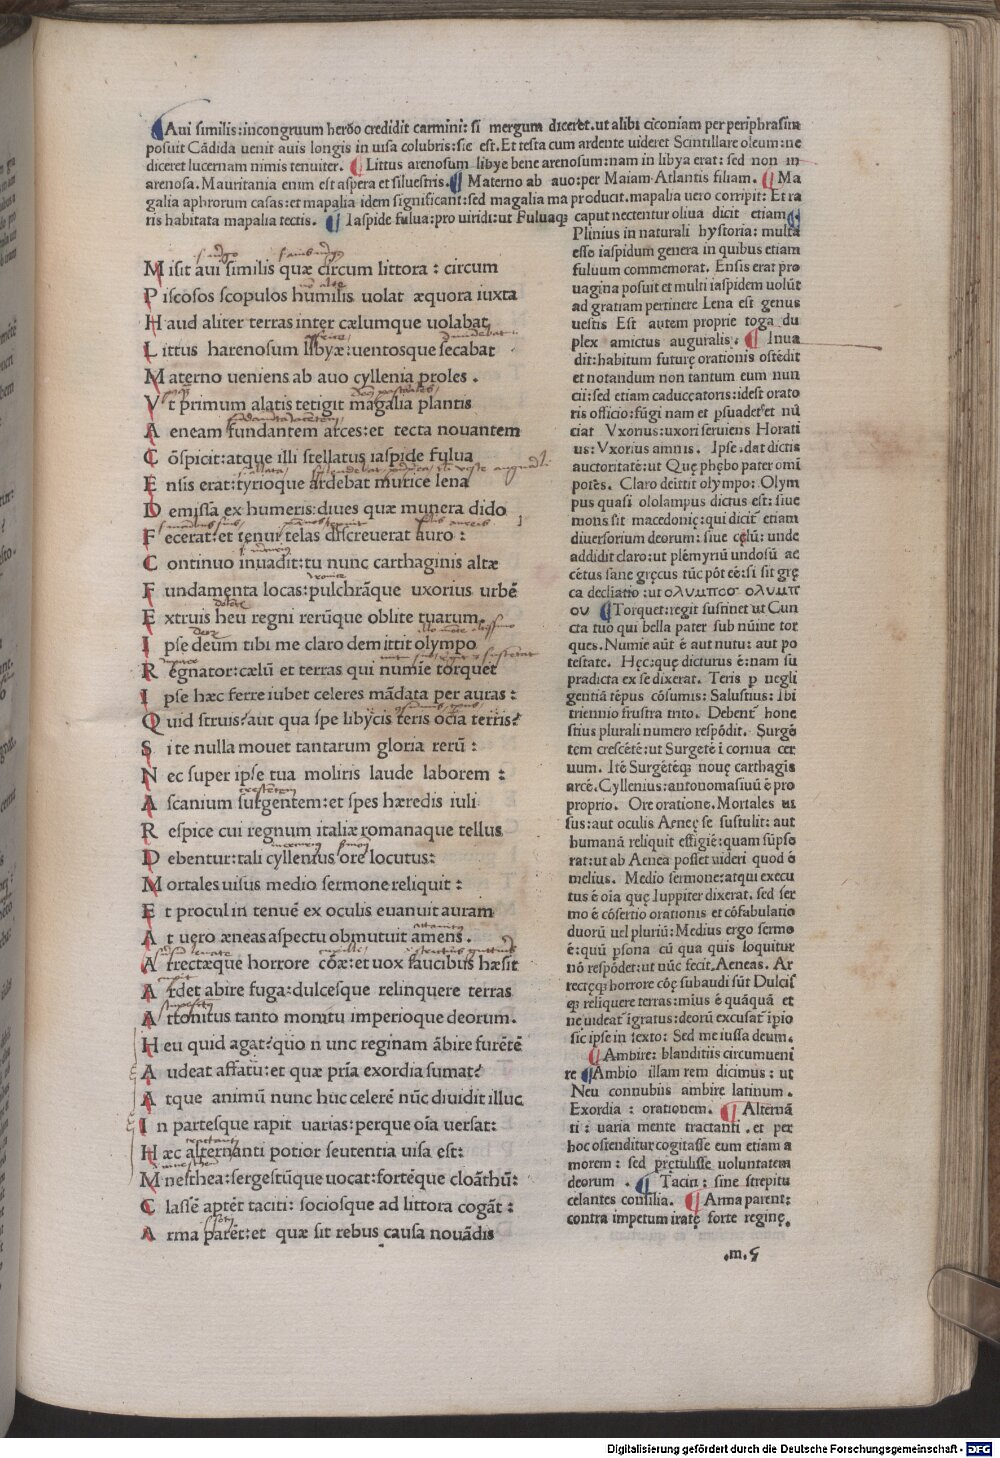 Aui similis:incongruum heröo credidit carmini: si mergum diceret.ut alibi ciconiam per periphrasim
posuit Cādida uenit auis longis in uisa colubris:sic est.Et testa cum ardente uideret Scintillare oleum:ne
diceret lucernam nimis tenuiter. Littus arenosum libye bene arenosum:nam in libya erat: sed non in
arenosa.Mauritania enim est aspera et siluestris. Materno ab auo:per Maiam Atlantis filiam. Ma
galia aphrorum casas:et mapalia idem significant:sed magalia ma producit.mapalia uero corripit: Et ra
ris habitata mapalia tectis. Iaspide fulua:pro uiridi:ut Fuluaq; caput nectentur oliua dicit etiam
Misit aui similis quæ circum littora : circum
Piscosos scopulos humilis uolat æquora iuxta
Haud aliter terras inter cælumque uolabat
Littus harenosum libyæ:uentosque secabat
Materno ueniens ab auo cyllenia proles .
Vt primum alatis tetigit magalia plantis
Aeneam fundantem arces:et tecta nouantem
Cōspicit:atque illi stellatus iaspide fulua
Ensis erat:tyrioque ardebat murice lena
Demissa ex humeris:diues quæ munera dido
Fecerat:et tenui telas discreuerat auro :
Continuo inuadit:tu nunc carthaginis altæ
Fundamenta locas:pulchrāque uxorius urbē
Extruis heu regni rerūque oblite tuarum.
Ipse deum tibi me claro demittit olympo
Regnator:cælū et terras qui numīe torquet
Ipse hæc ferre iubet celeres mādata per auras :
Quid struis?aut qua spe libycis teris ocia terris?
Si te nulla mouet tantarum gloria rerū :
Nec super ipse tua moliris laude laborem :
Ascanium surgentem:et spes hæredis iuli
Respice cui regnum italiæ romanaque tellus
Debentur:tali cyllenius ore locutus:
Mortales uisus medio sermone reliquit :
Et procul in tenuē ex oculis euanuit auram
At uero æneas aspectu obmutuit amens .
Arrectæque horrore cōæ:et uox faucibus hæsit
Ardet abire fuga:dulcesque relinquere terras
Attonitus tanto monitu imperioque deorum.
Heu quid agat?quo n unc reginam ābire furētē
Audeat affatū:et quæ prīa exordia sumat?
Atque animū nunc huc celerē nūc diuidit illuc
In partesque rapit uarias:perque oīa uersat:
Hæc alternanti potior seutentia uisa est:
Mnesthea:sergestūque uocat:fortēque cloāthū:
Classē aptēt taciti: sociosque ad littora cogāt :
Arma parēt:et quæ sit rebus causa nouādis
Plinius in naturali hystoria: multa
esse iaspidum genera in quibus etiam
fuluum commemorat. Ensis erat pro
uagina posuit et multi iaspidem uolūt
ad gratiam pertinere Lena est genus
uestis Est autem proprie toga du
plex amictus auguralis. Inua
dit:habitum future orationis ostēdit
et notandum non tantum eum nun
cii:sed etiam caduceatoris:idest orato
ris officio:fūgi nam et psuaderet et nū
ciat Vxorius:uxori seruiens Horati
us: Vxorius amnis. Ipse.dat dictis
auctoritatē:ut Quę phębo pater omī
potēs. Claro demittit olympo: Olym
pus quasi ololampus dictus est: siue
mons sit macedonię:qui dicit etiam
diuersorium deorum: siue cęlū: unde
addidit claro:ut plēmyriū undosū ac
cētus sane gręcus tūc pōt eē:si sit grę
ca decliatio :ut ολυμπσο· ολυμπ
ου Torquet:regit sustinet ut Cun
cta tuo qui bella pater sub nūine tor
ques.Numīe aūt ē aut nutu: aut po
testate. Hęc:quę dicturus ē:nam su
pradicta ex se dixerat. Teris p negli
gentiā tēpus cōsumis: Salustius: Ibi
triennio frustra trito. Debent hone
stius plurali numero respōdit. Surgē
tem crescētē:ut Surgetē ī cornua cer
uum. Itē Surgētēq; nouę carthagis
arcē.Cyllenius:antonomasiuū ē pro
proprio. Ore oratione.Mortales ui
sus:aut oculis Aeneę se sustulit: aut
humanā reliquit effigiē:quam sūpse
rat:ut ab Aenea posset uideri quod ē
melius. Medio sermone:atqui execu
tus ē oīa quę Iuppiter dixerat. sed ser
mo ē cōsertio orationis et cōfabulatio
duorū uel pluriū: Medius ergo sermo
ē:quū psona cū qua quis loquitur
nō respōdet:ut nūc fecit.Aeneas. Ar
rectęq; horrore cōę subaudi sūt Dulcis
q; reliquere terras:mius ē quāquā et
ne uideat īgratus:deorū excusat ipio
sic ipse in texto: Sed me iussa deum.
Ambire: blanditiis circumueni
re Ambio illam rem dicimus : ut
Neu connubiis ambire latinum.
Exordia : orationem. Alternā
ti : uaria mente tractanti . et per
hoc ostenditur cogitasse eum etiam a
morem : sed pretulisse uoluntatem
deorum . Taciti : sine strepitu
celantes consilia. Arma parent:
contra impetum iratę forte reginę.
.m.5
Digitalisierung gefördert durch die Deutsche Forschungsgemeinschaft - DFG